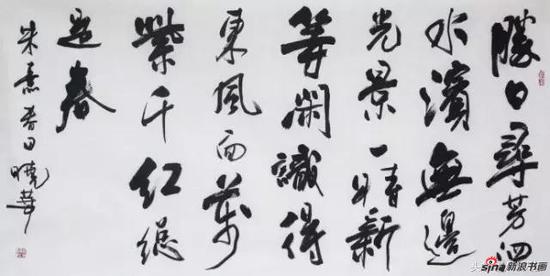 勝日尋芳泗
水濱無邊
光景一時新
等閑識得
東風面萬
紫千紅總
是春
朱熹春日 曉華
sina新浪书画